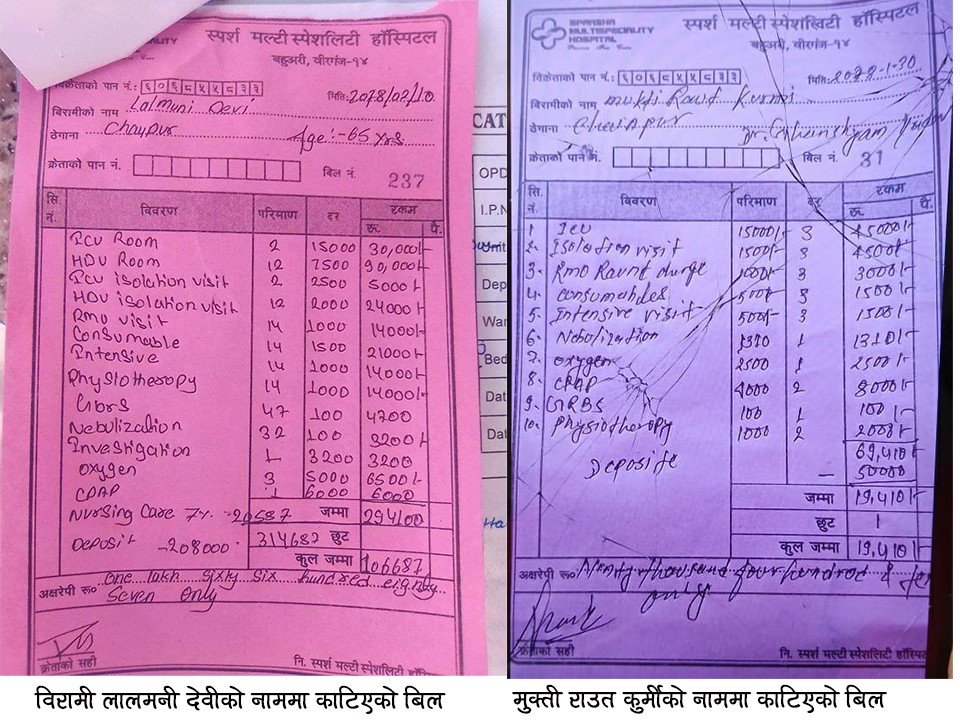 स्पर्श मल्टी स्पेशलिटी हॉस्पिटल
बहुअरी, वीरगंज-१४
विक्रेताको पान नं.: ६०६८५५८३३
मिति: 2078/02/10
बिरामीको नाम Lalmuni Devi
ठेगाना Chaypur Age :- 65 yrs
क्रेताको पान नं.
बिल नं. 237
सि. नं. विवरण परिमाण दर रकम रू. पै.
ICU Room 2 15000 30,000/-
HDU Room 12 7500 90,000/-
ICU isolation visit 2 2500 5000/-
HDU isolation visit 12 2000 24000/-
RMO visit 14 1000 14000/-
Consumable 14 1500 21000/-
Intensive 14 1000 14000/-
Physiotherapy 14 1000 14000/-
GBRS 47 100 4700
Nebulization 32 100 3200/-
Investigation 1 3200 3200
Oxygen 5000 65000/-
CPAP 1 6000 6000
Nursing Care 7% -20587 जम्मा 294100
Deposit -208000 314687 छुट
कुल जम्मा 106687
अक्षरेपी रू० one lakh sixty six hundred eighty
Seven Only
क्रेताको सही
नि. स्पर्श मल्टी स्पेशलिटी हॉस्पि
CAT
OPD
I.P.N
Dep
War
Bed
Dat
Dat
SPARSHA
MULTISPECIALITY
HOSPITAL
स्पर्श मल्टी स्पेशलिटी हॉस्पिटल
बहुअरी, वीरगंज-१४
विक्रेताको पान नं.: ६०६८५५८३३
मिति: 2078-1-30
बिरामीको नाम Mukti Raut Kurmi
ठेगाना Chainpur Dr. Ghanshyam
क्रेताको पान नं.
बिल नं. 31
सि. नं. विवरण परिमाण दर रकम रू. पै.
1 ICU 15000/- 3 45000/-
2. Isolation visit 1500/- 3 4500/-
3. RMO Raund charge 1000/- 3 3000/-
4. Consumables 3 1500/-
5. Intensive visit 500/- 3 1500/-
6. Nebulization 1310 1 1310/-
7. Oxygen 2500 1 2500/-
8. CPAP 4000 2 8000/-
9. GRBS 100 1 100/-
10. Physiotherapy 1000 2 2000/-
69,410/-
Deposite — 50000
जम्मा 19,410/-
छुट 1
कुल जम्मा 19,410/-
अक्षरेपी रू० Ninty thousand four hundred & ten
only
क्रेताको सही
नि. स्पर्श मल्टी स्पेशलिटी हॉस्पि
विरामी लालमनी देवीको नाममा काटिएको बिल
मुक्ती राउत कुर्मीको नाममा काटिएको बिल